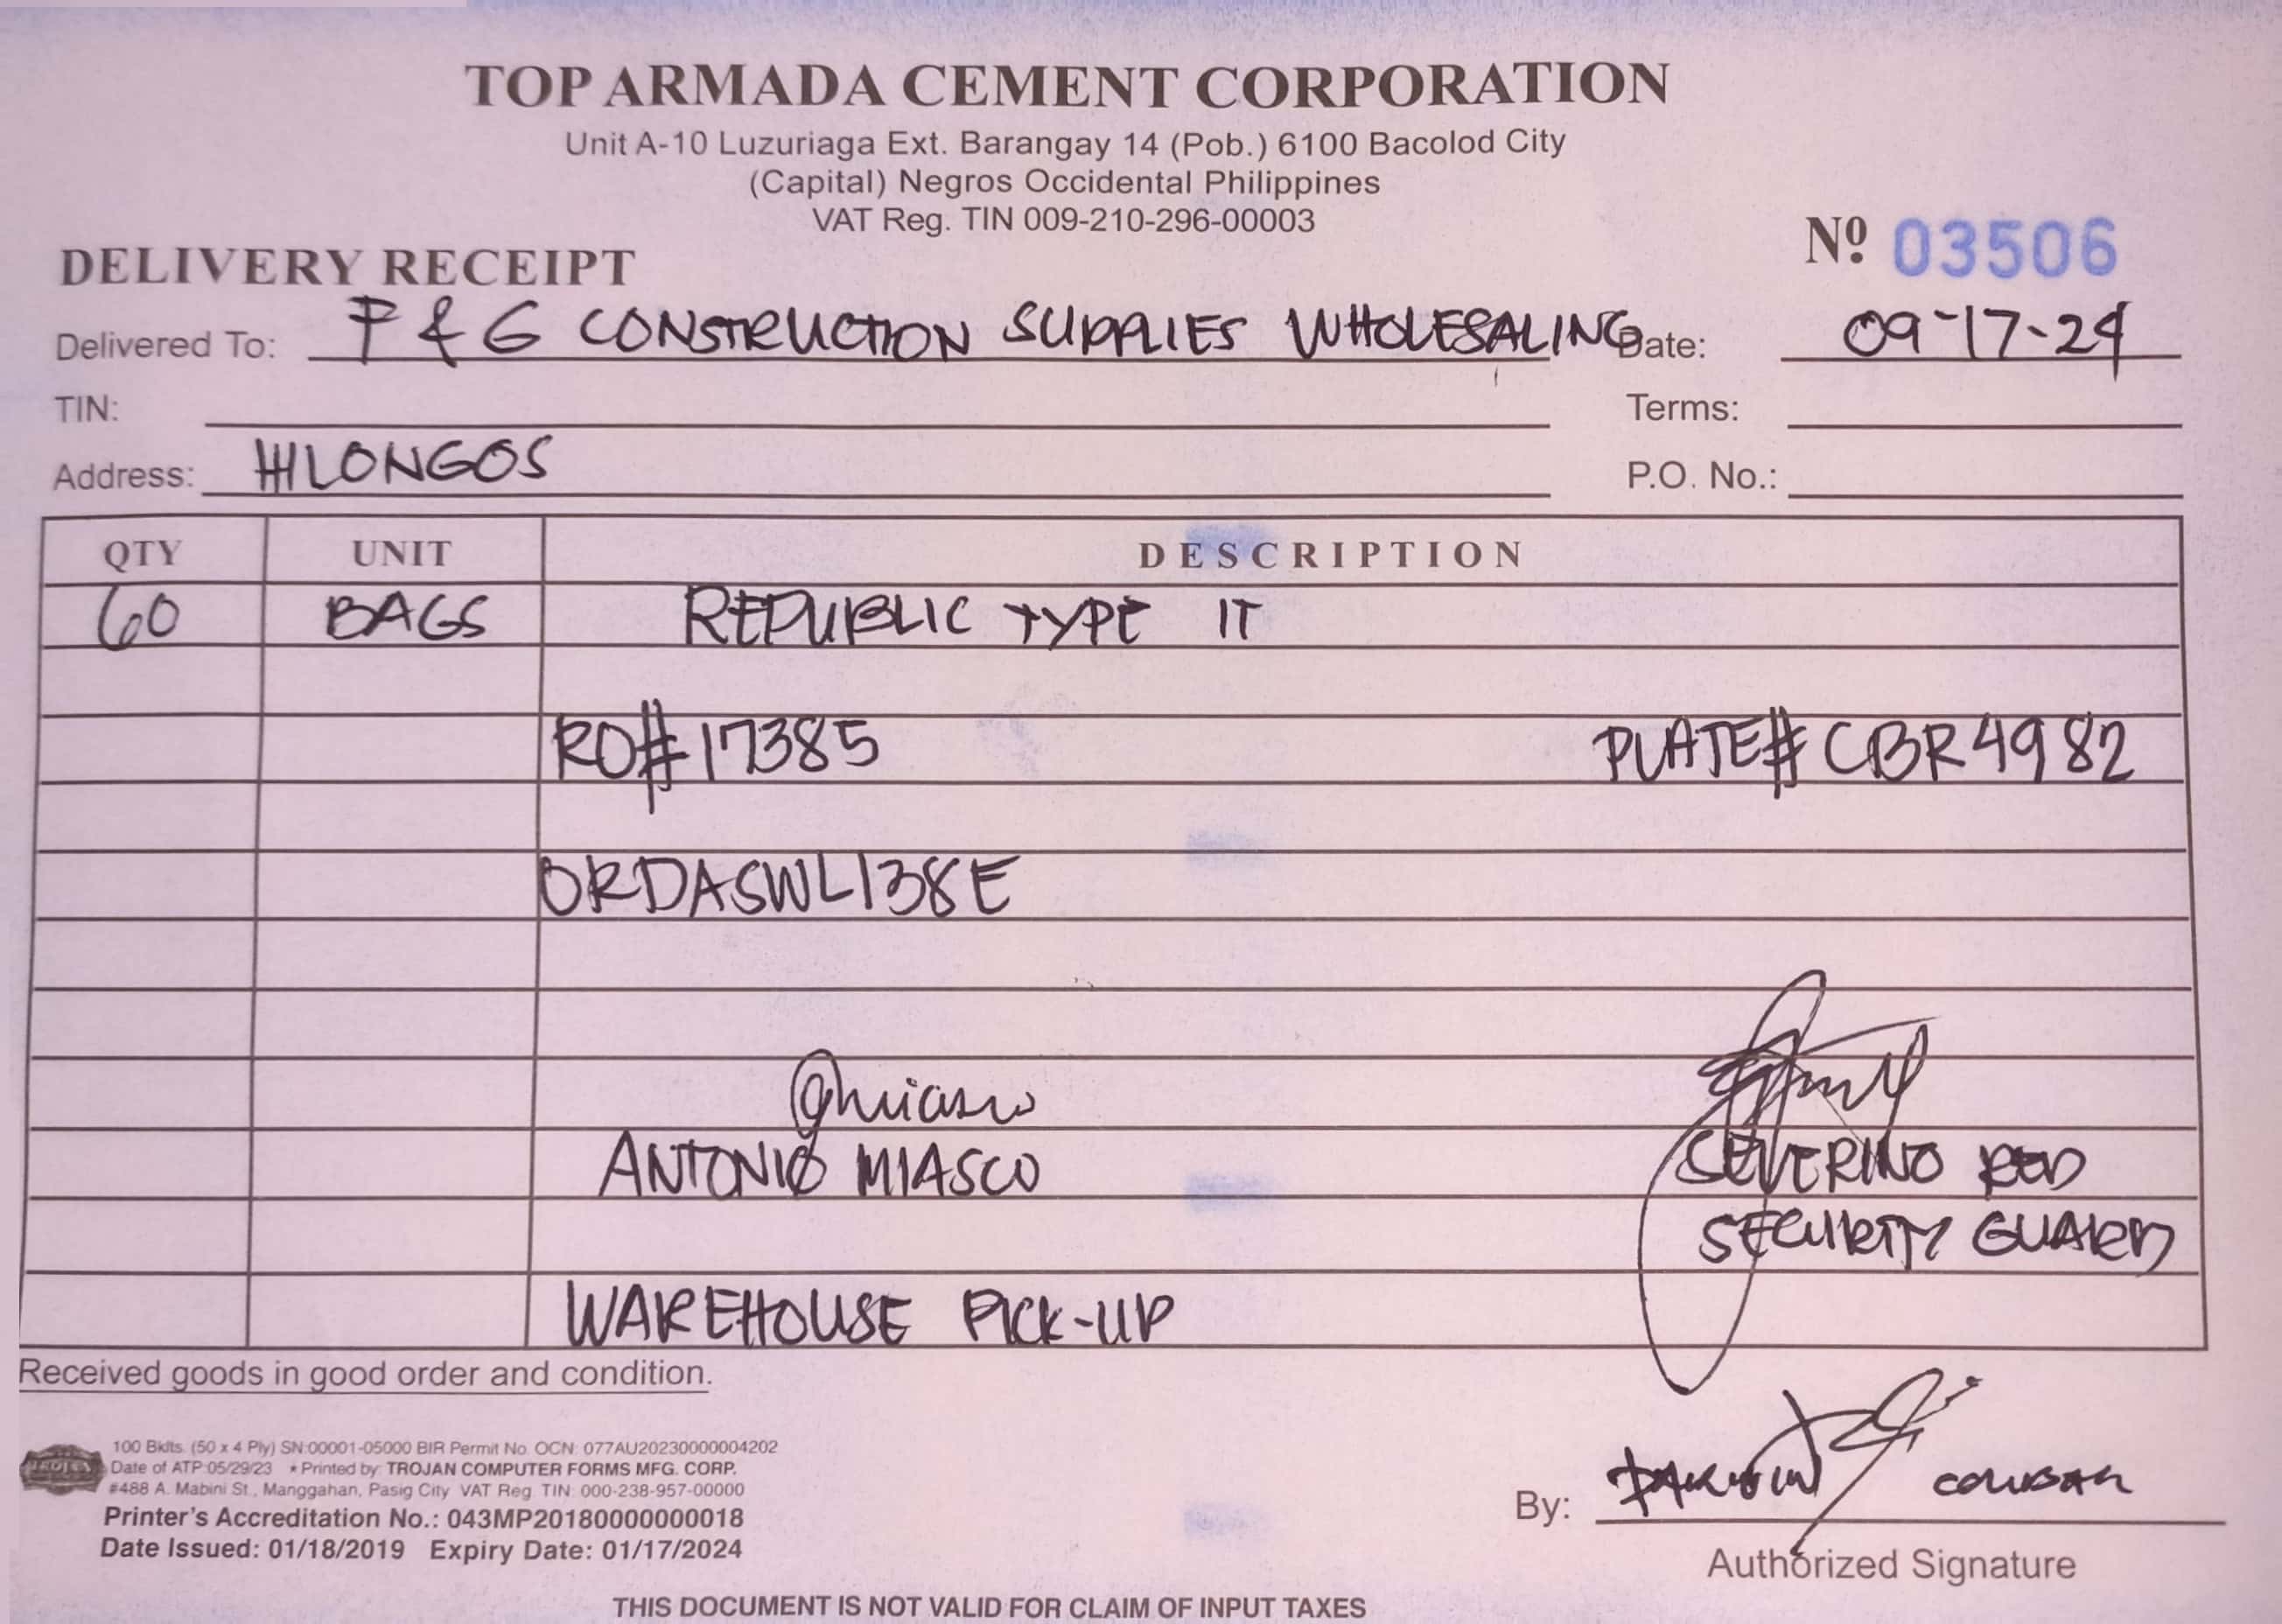 TOP ARMADA CEMENT CORPORATION
Unit A-10 Luzuriaga Ext. Barangay 14 (Pob.) 6100 Bacolod City
(Capital) Negros Occidental Philippines
VAT Reg. TIN 009-210-296-00003
Nº 03506
DELIVERY RECEIPT
Delivered To: P & G CONSTRUCTION SUPPLIES WHOLESALING Date: 09-17-24
TIN: Terms:
Address: HILONGOS P.O. No.:
QTY UNIT DESCRIPTION
60 BAGS REPUBLIC TYPE IT
RO# 17385 PLATE# CBR4982
ORDASWL138E
ANTONIO MIASCO SEVERINO RED
SECURITY GUARD
WAREHOUSE PICK-UP
Received goods in good order and condition.
100 Bklts. (50 x 4 Ply) SN:00001-05000 BIR Permit No. OCN: 077AU20230000004202
Date of ATP:05/29/23 * Printed by: TROJAN COMPUTER FORMS MFG. CORP.
#488 A. Mabini St., Manggahan, Pasig City VAT Reg. TIN: 000-238-957-00000
Printer's Accreditation No.: 043MP20180000000018
Date Issued: 01/18/2019 Expiry Date: 01/17/2024
By:
Authorized Signature
THIS DOCUMENT IS NOT VALID FOR CLAIM OF INPUT TAXES